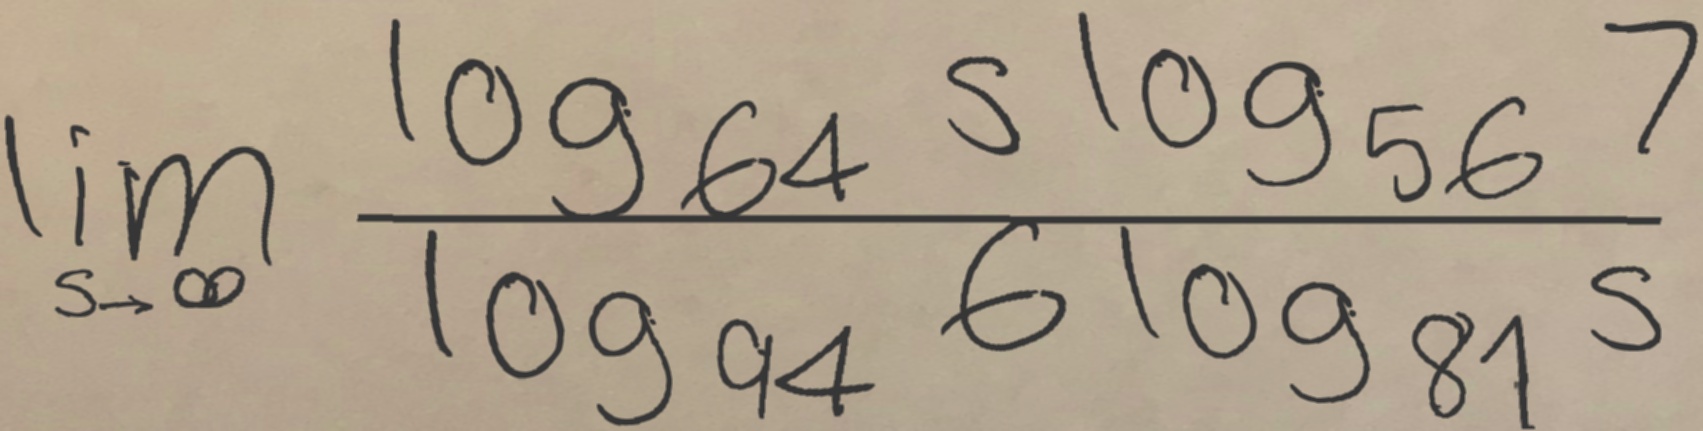 \lim_{s \to \infty} \frac{\log_{64} s \log_{56} 7}{\log_{94} 6 \log_{81} s}